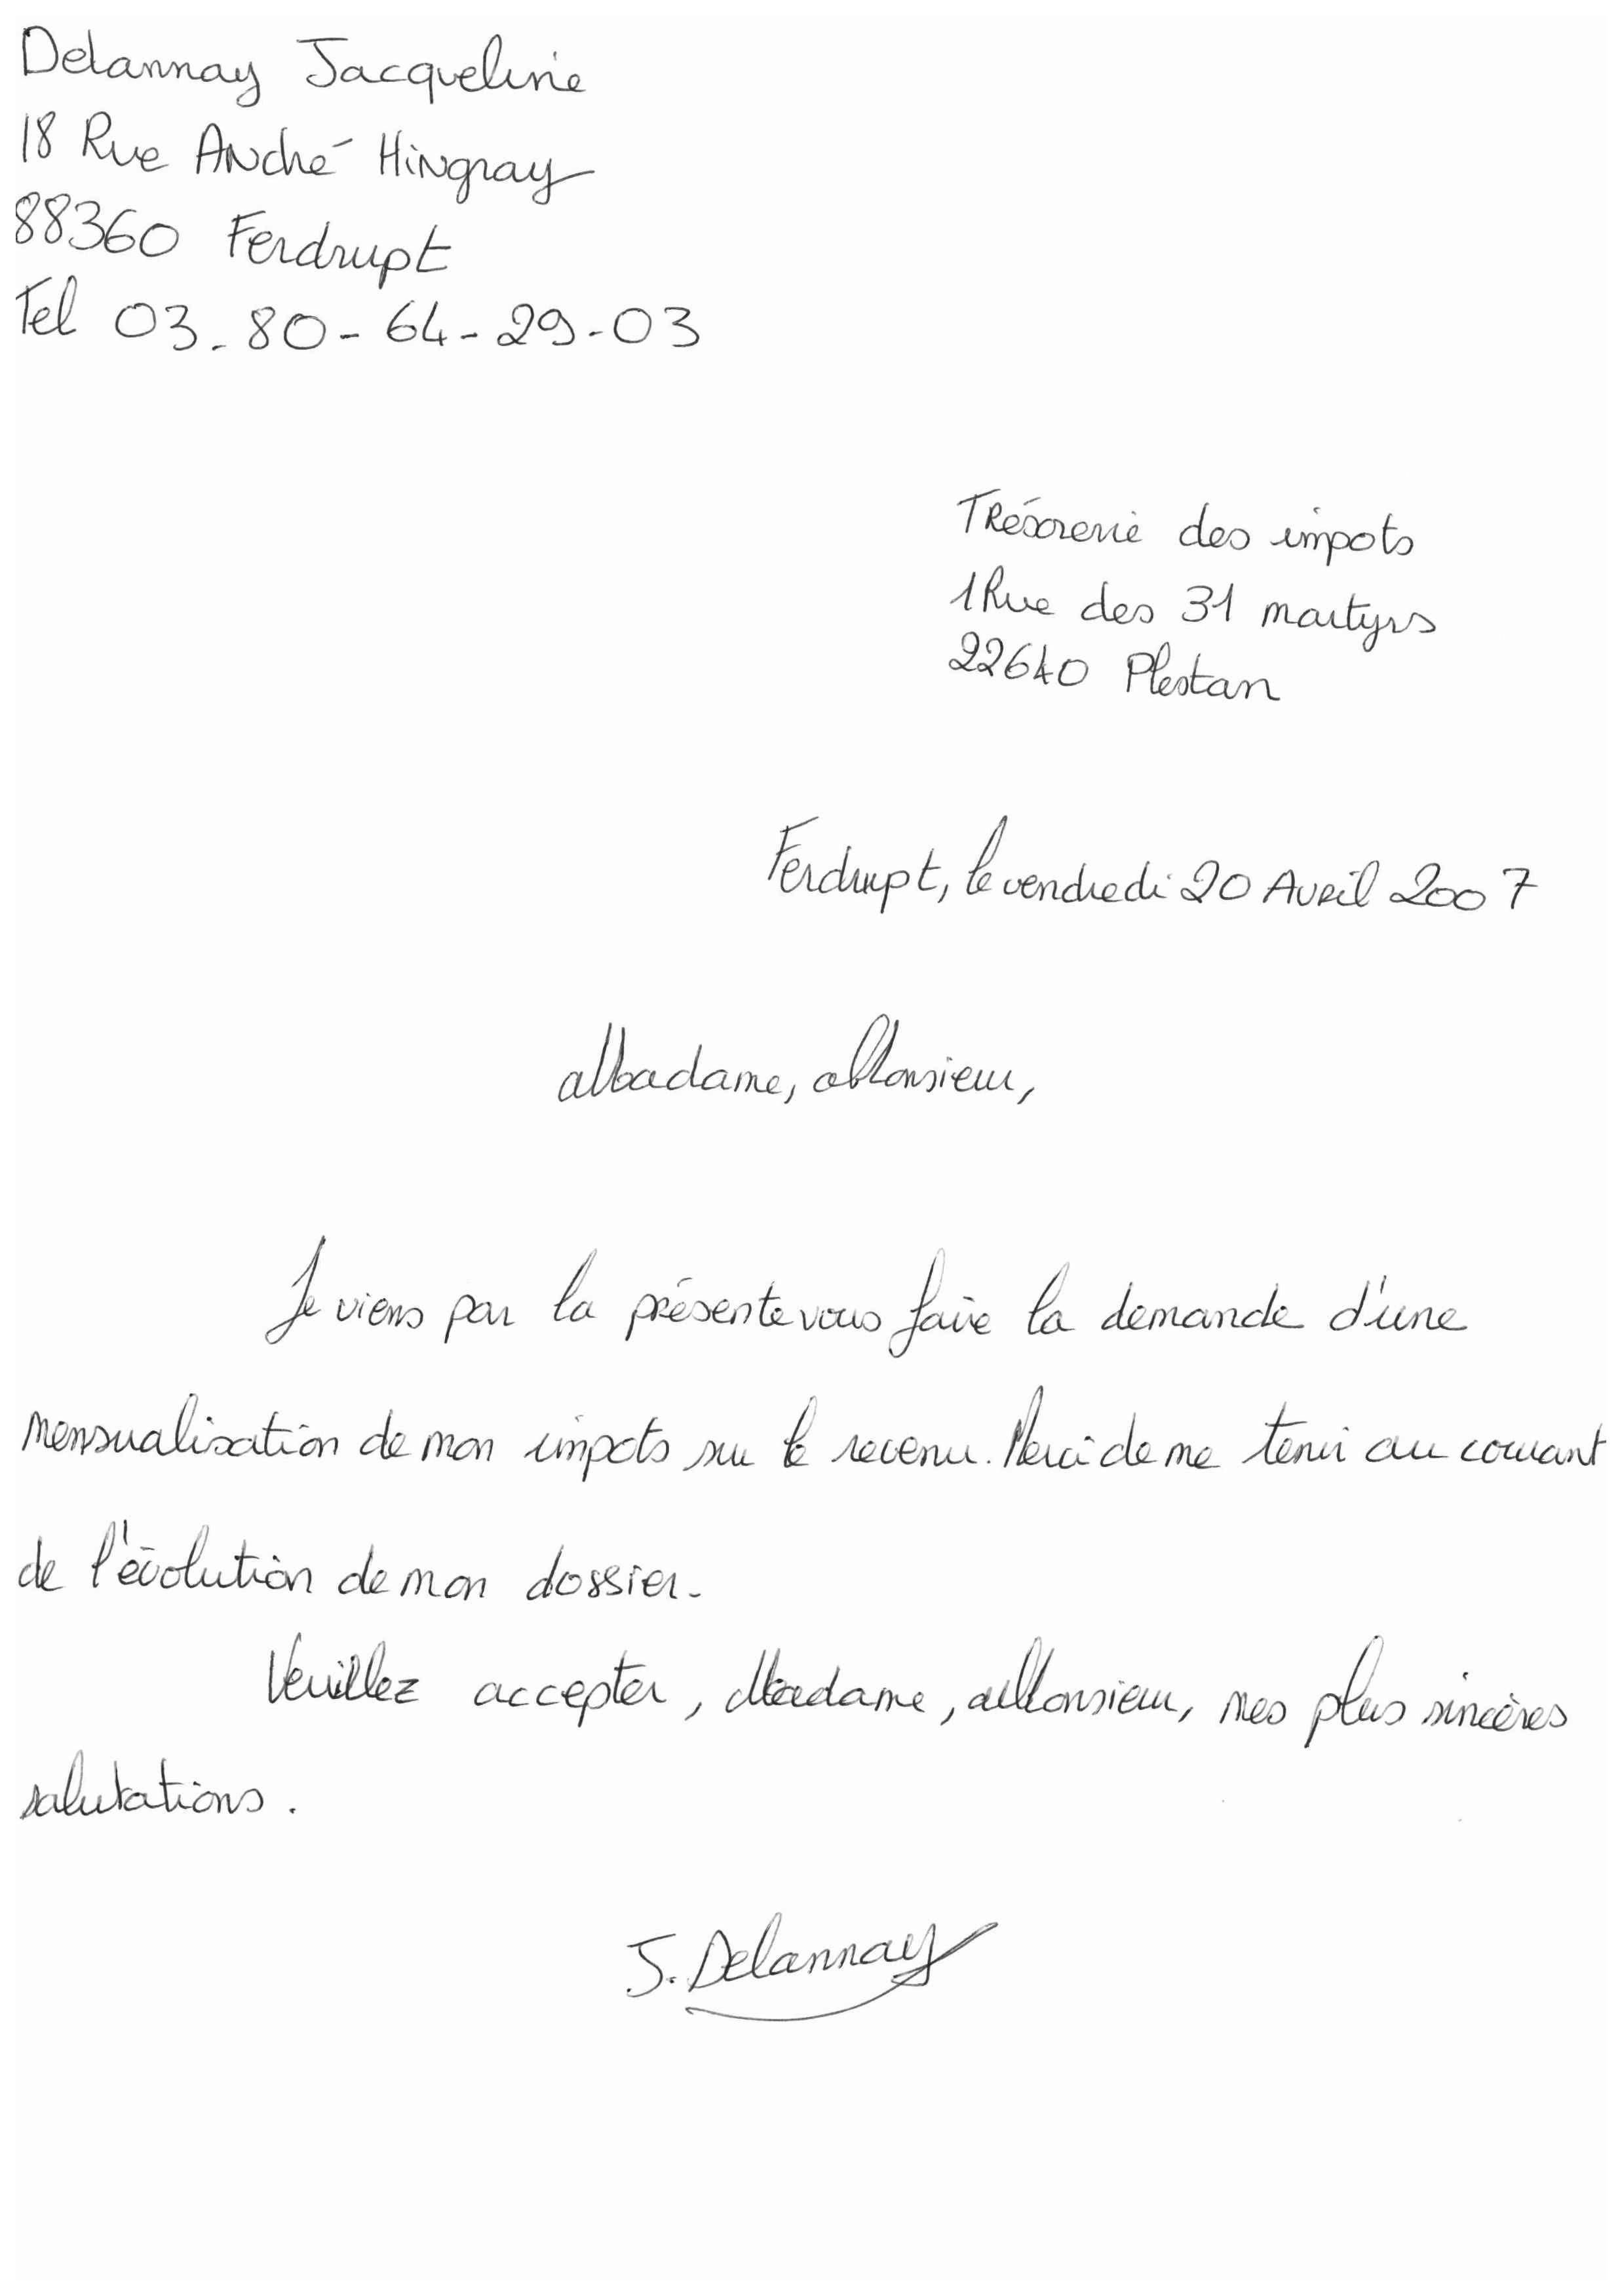 Delannay Jacqueline
18 Rue André Hingray
88360 Ferdrupt
Tel 03-80-64-29-03
Trésorerie des impots
1 Rue des 31 martyrs
22640 Plestan
Ferdrupt, le vendredi 20 Avril 2007
Madame, Monsieur,
Je viens par la présente vous faire la demande d'une
mensualisation de mon impots sur le revenu. Merci de me tenir au courant
de l'évolution de mon dossier.
Veuillez accepter, Madame, Monsieur, mes plus sincères
salutations.
J. Delannay